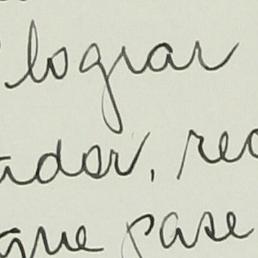 lograr
ador, rec
que pase